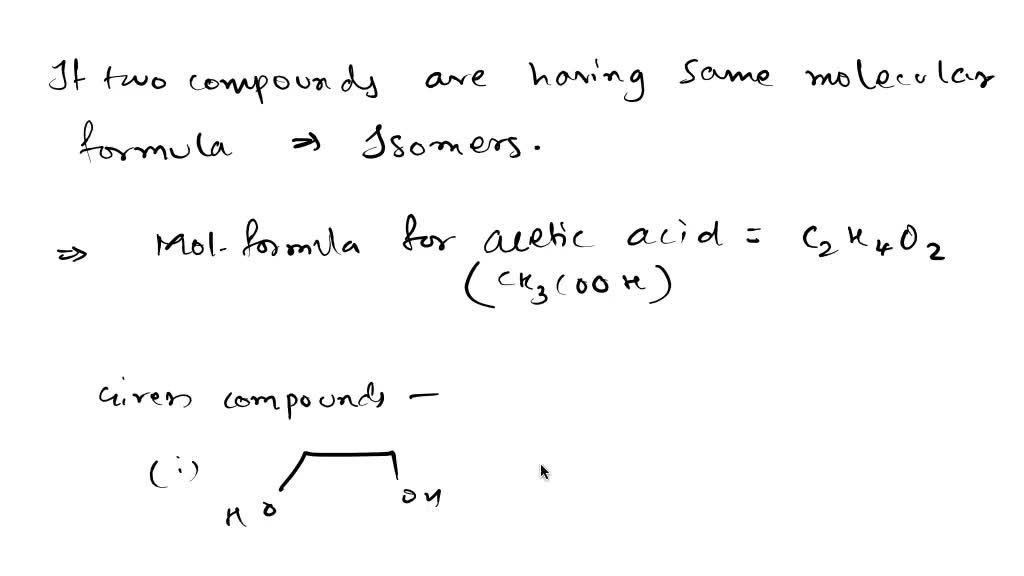 If two compounds are having same molecular
formula ⇒ Isomers.
⇒ Mol-formula for acetic acid = C₂H₄O₂
(CH₃COOH)
Given compounds –
(i)
HO OH